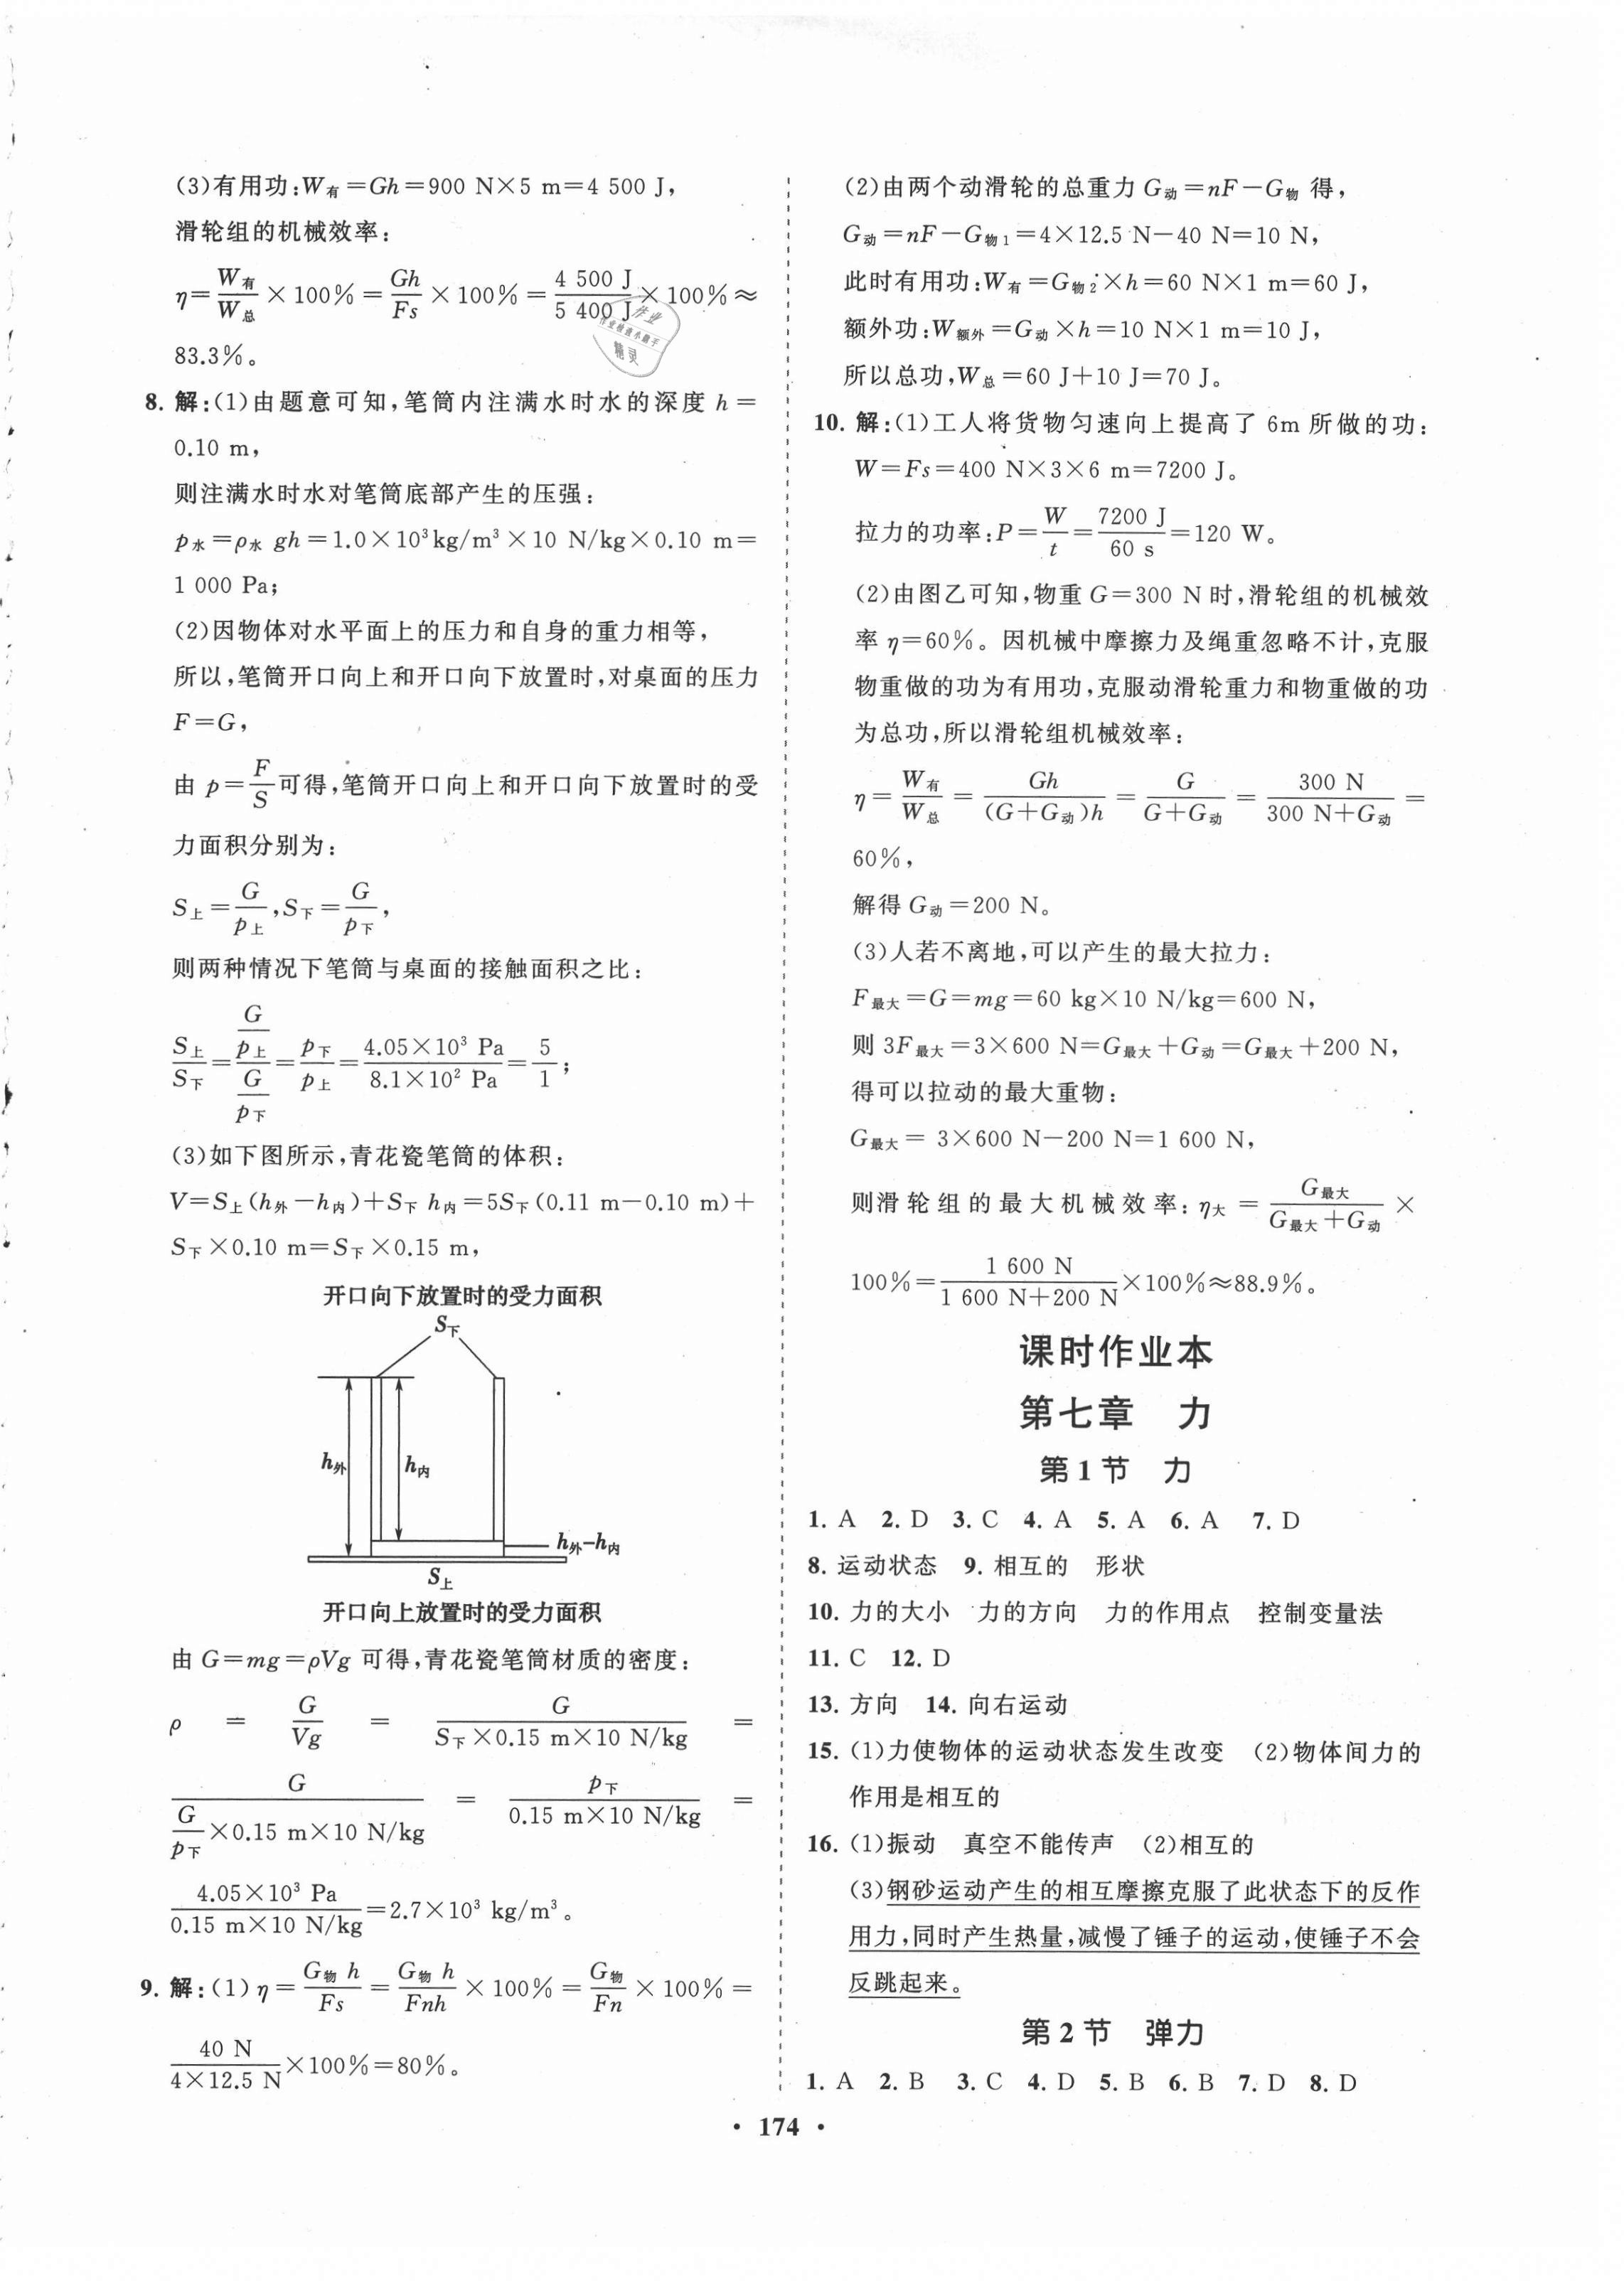 (3)有用功:W有=Gh=900 N×5 m=4 500 J,
滑轮组的机械效率:
η=W有/W总×100%=Gh/Fs×100%=4 500 J/5 400 J×100%≈
83.3%。
8. 解:(1)由题意可知,笔筒内注满水时水的深度 h=
0.10 m,
则注满水时水对笔筒底部产生的压强:
p水=ρ水 gh=1.0×10³kg/m³×10 N/kg×0.10 m=
1 000 Pa;
(2)因物体对水平面上的压力和自身的重力相等,
所以,笔筒开口向上和开口向下放置时,对桌面的压力
F=G,
由 p=F/S可得,笔筒开口向上和开口向下放置时的受
力面积分别为:
S上=G/p上,S下=G/p下,
则两种情况下笔筒与桌面的接触面积之比:
S上/S下=(G/p上)/(G/p下)=p下/p上=4.05×10³ Pa/8.1×10² Pa=5/1;
(3)如下图所示,青花瓷笔筒的体积:
V=S上(h外-h内)+S下 h内=5S下(0.11 m-0.10 m)+
S下×0.10 m=S下×0.15 m,
开口向下放置时的受力面积
S下
h外
h内
h外-h内
S上
开口向上放置时的受力面积
由 G=mg=ρVg 可得,青花瓷笔筒材质的密度:
ρ=G/Vg=G/(S下×0.15 m×10 N/kg)=
G/(G/p下×0.15 m×10 N/kg)=p下/(0.15 m×10 N/kg)=
4.05×10³ Pa/(0.15 m×10 N/kg)=2.7×10³ kg/m³。
9. 解:(1)η=G物 h/Fs=G物 h/Fnh×100%=G物/Fn×100%=
40 N/(4×12.5 N)×100%=80%。
(2)由两个动滑轮的总重力 G动=nF-G物 得,
G动=nF-G物1=4×12.5 N-40 N=10 N,
此时有用功:W有=G物2×h=60 N×1 m=60 J,
额外功:W额外=G动×h=10 N×1 m=10 J,
所以总功,W总=60 J+10 J=70 J。
10. 解:(1)工人将货物匀速向上提高了 6m 所做的功:
W=Fs=400 N×3×6 m=7200 J。
拉力的功率:P=W/t=7200 J/60 s=120 W。
(2)由图乙可知,物重 G=300 N 时,滑轮组的机械效
率 η=60%。因机械中摩擦力及绳重忽略不计,克服
物重做的功为有用功,克服动滑轮重力和物重做的功
为总功,所以滑轮组机械效率:
η=W有/W总=Gh/(G+G动)h=G/(G+G动)=300 N/(300 N+G动)=
60%,
解得 G动=200 N。
(3)人若不离地,可以产生的最大拉力:
F最大=G=mg=60 kg×10 N/kg=600 N,
则 3F最大=3×600 N=G最大+G动=G最大+200 N,
得可以拉动的最大重物:
G最大= 3×600 N-200 N=1 600 N,
则滑轮组的最大机械效率:η大=G最大/(G最大+G动)×
100%=1 600 N/(1 600 N+200 N)×100%≈88.9%。
课时作业本
第七章 力
第1节 力
1. A 2. D 3. C 4. A 5. A 6. A 7. D
8. 运动状态 9. 相互的 形状
10. 力的大小 力的方向 力的作用点 控制变量法
11. C 12. D
13. 方向 14. 向右运动
15. (1)力使物体的运动状态发生改变 (2)物体间力的
作用是相互的
16. (1)振动 真空不能传声 (2)相互的
(3)钢砂运动产生的相互摩擦克服了此状态下的反作
用力,同时产生热量,减慢了锤子的运动,使锤子不会
反跳起来。
第2节 弹力
1. A 2. B 3. C 4. D 5. B 6. B 7. D 8. D
• 174 •